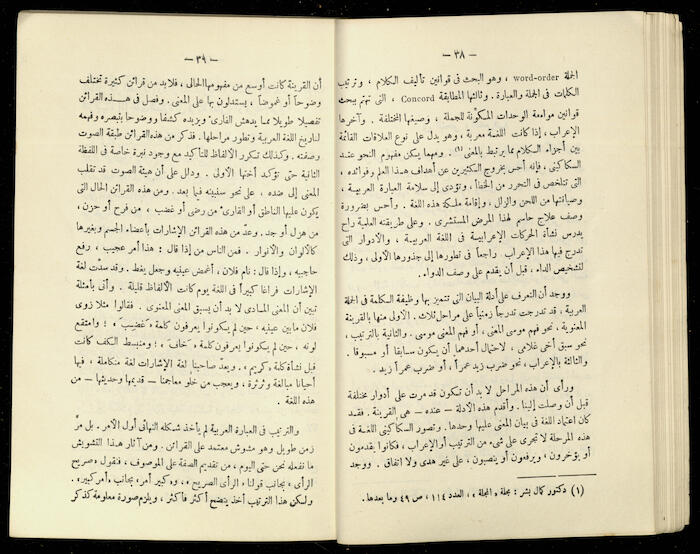 — ٣٨ —
الجملة word-order ، وهو البحث فى قوانين تأليف الكلام ، وترتيب
الكلمات فى الجملة والعبارة . وثالثها المطابقة Concord ، التى تهتم ببحث
قوانين مواءمة الوحدات المسكونة للجملة ، وصيغها المختلفة . وآخرها
الإعراب ، إذا كانت اللغة معربة ، وهو يدل على نوع العلاقات القائمة
بين أجزاء الكلام مما يرتبط بالمعنى (١) . ومهما يكن مفهوم النحو عند
السكاكينى ، فإنه أحس بخروج الكثيرين عن أهداف هذا العلم وفوائده ،
التى تتلخص فى التحرر من الخطأ ، وتؤدى إلى سلامة العبارة العربية ،
وصيانتها من اللحن والزلل ، وإقامة ملكة هذه اللغة . وأحس بضرورة
وصف علاج حاسم لهذا المرض المستشرى . وعلى طريقته العلمية راح
يدرس نشأة الحركات الإعرابية فى اللغة العربية ، والأدوار التى
تدرج فيها هذا الإعراب . راجعاً فى تطورها إلى جذورها الأولى ، وذلك
لتشخيص الداء . قبل أن يقدم على وصف الدواء .
ووجد أن التعرف على أدلة البيان التى تتميز بها وظيفة الكلمة فى الجملة
العربية ، قد تدرجت تدرجاً زمنياً على مراحل ثلاث . الأولى منها بالقرينة
المعنوية ، نحو فهم موسى المعنى ، أو فهم المعنى موسى . والثانية بالترتيب ،
نحو سبق أخى غلامى ، لاحتمال أحدهما أن يكون سابقا أو مسبوقا .
والثالثة بالإعراب ، نحو ضرب زيد عمراً ، أو ضرب عمراً زيد .
ورأى أن هذه المراحل لا بد أن تكون قد مرت على أدوار مختلفة
قبل أن وصلت إلينا . وأقدم هذه الأدلة — عنده — هى القرينة . فقد
كان اعتماد اللغة فى بيان المعنى عليها وحدها . وتصور السكاكينى اللغة فى
هذه المرحلة لا تجرى على شىء من الترتيب أو الإعراب ، فكانوا يقدمون
أو يؤخرون ، ويرفعون أو ينصبون ، على غير هدى ولا اتفاق . ووجد
(١) دكتور كمال بشر : مجلة «المجلة» ، العدد ١١٤ ، ص ٤٩ وما بعدها .
— ٣٩ —
أن القرينة كانت أوسع من مفهومها الحالى ، فلابد من قرائن كثيرة تختلف
وضوحاً أو غموضاً ، يستدلون بها على المعنى . وفصل فى هذه القرائن
تفصيلا طويلا مما يدهش القارىء ويزيده كشفا ووضوحا بتبصره وفهمه
لتاريخ اللغة العربية وتطور مراحلها . فذكر من هذه القرائن طبقة الصوت
وصفته . وكذلك تكرر الألفاظ للتأكيد مع وجود نبرة خاصة فى اللفظة
الثانية حتى تؤكد أختها الأولى . ودلل على أن هيئة الصوت قد تقلب
المعنى إلى ضده ، على نحو سنبينه فيما بعد . ومن هذه القرائن الحال التى
يكون عليها الناطق أو القارىء من رضى أو غضب ، من فرح أو حزن ،
من هزل أو جد . وعدّ من هذه القرائن الإشارات بأعضاء الجسم وبغيرها
كالألوان والأنوار . فمن الناس من إذا قال : هذا أمر عجيب ، رفع
حاجبيه ، وإذا قال : نام فلان ، أغمض عينيه وجعل يغط . وقد سدّت لغة
الإشارات فراغا كبيراً فى اللغة يوم كانت الألفاظ قليلة . وأتى بأمثلة
تبين أن المعنى المادى لا بد أن يسبق المعنى المعنوى . فقالوا مثلا زوى
فلان مابين عينيه ، حين لم يكونوا يعرفون كلمة «غضب» ؛ وامتقع
لونه ، حين لم يكونوا يعرفون كلمة «خاف» ؛ ومنبسط الكف كانت
قبل نشأة كلمة «كريم» . ويعد صاحبنا لغة الإشارات لغة متكاملة ، فيها
أحيانا مبالغة وثرثرة ، ويعجب من خلو معاجمنا — قديمها وحديثها — من
هذه اللغة .
والترتيب فى العبارة العربية لم يأخذ شكله النهائى أول الأمر . بل مرّ
زمن طويل وهو مشوش معتمد على القرائن . ومن آثار هذا التشويش
ما نفعله نحن حتى اليوم ، من تقديم الصفة على الموصوف ، فنقول «صريح
الرأى» بجانب قولنا «الرأى الصريح» ، «وكبير أمر» بجانب «أمر كبير» .
ولكن هذا الترتيب أخذ يتضح أكثر فأكثر ، ويلزم صورة معلومة كذكر